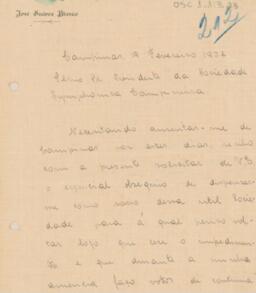 OSC 1.1.8.23
212
José Soares Branco
Campinas 9 Fevereiro 1932
Presidente da Sociedade
Symphonica Campineira
Necessitando ausentar-me de
Campinas por estes dias, venho
com a presente solicitar de V.S.
o especial obsequio de dispensar-
me como socio dessa util Socie-
dade para á qual penso vol-
tar logo que cesse o impedimen-
to e que durante a minha
ausencia faço votos de continua